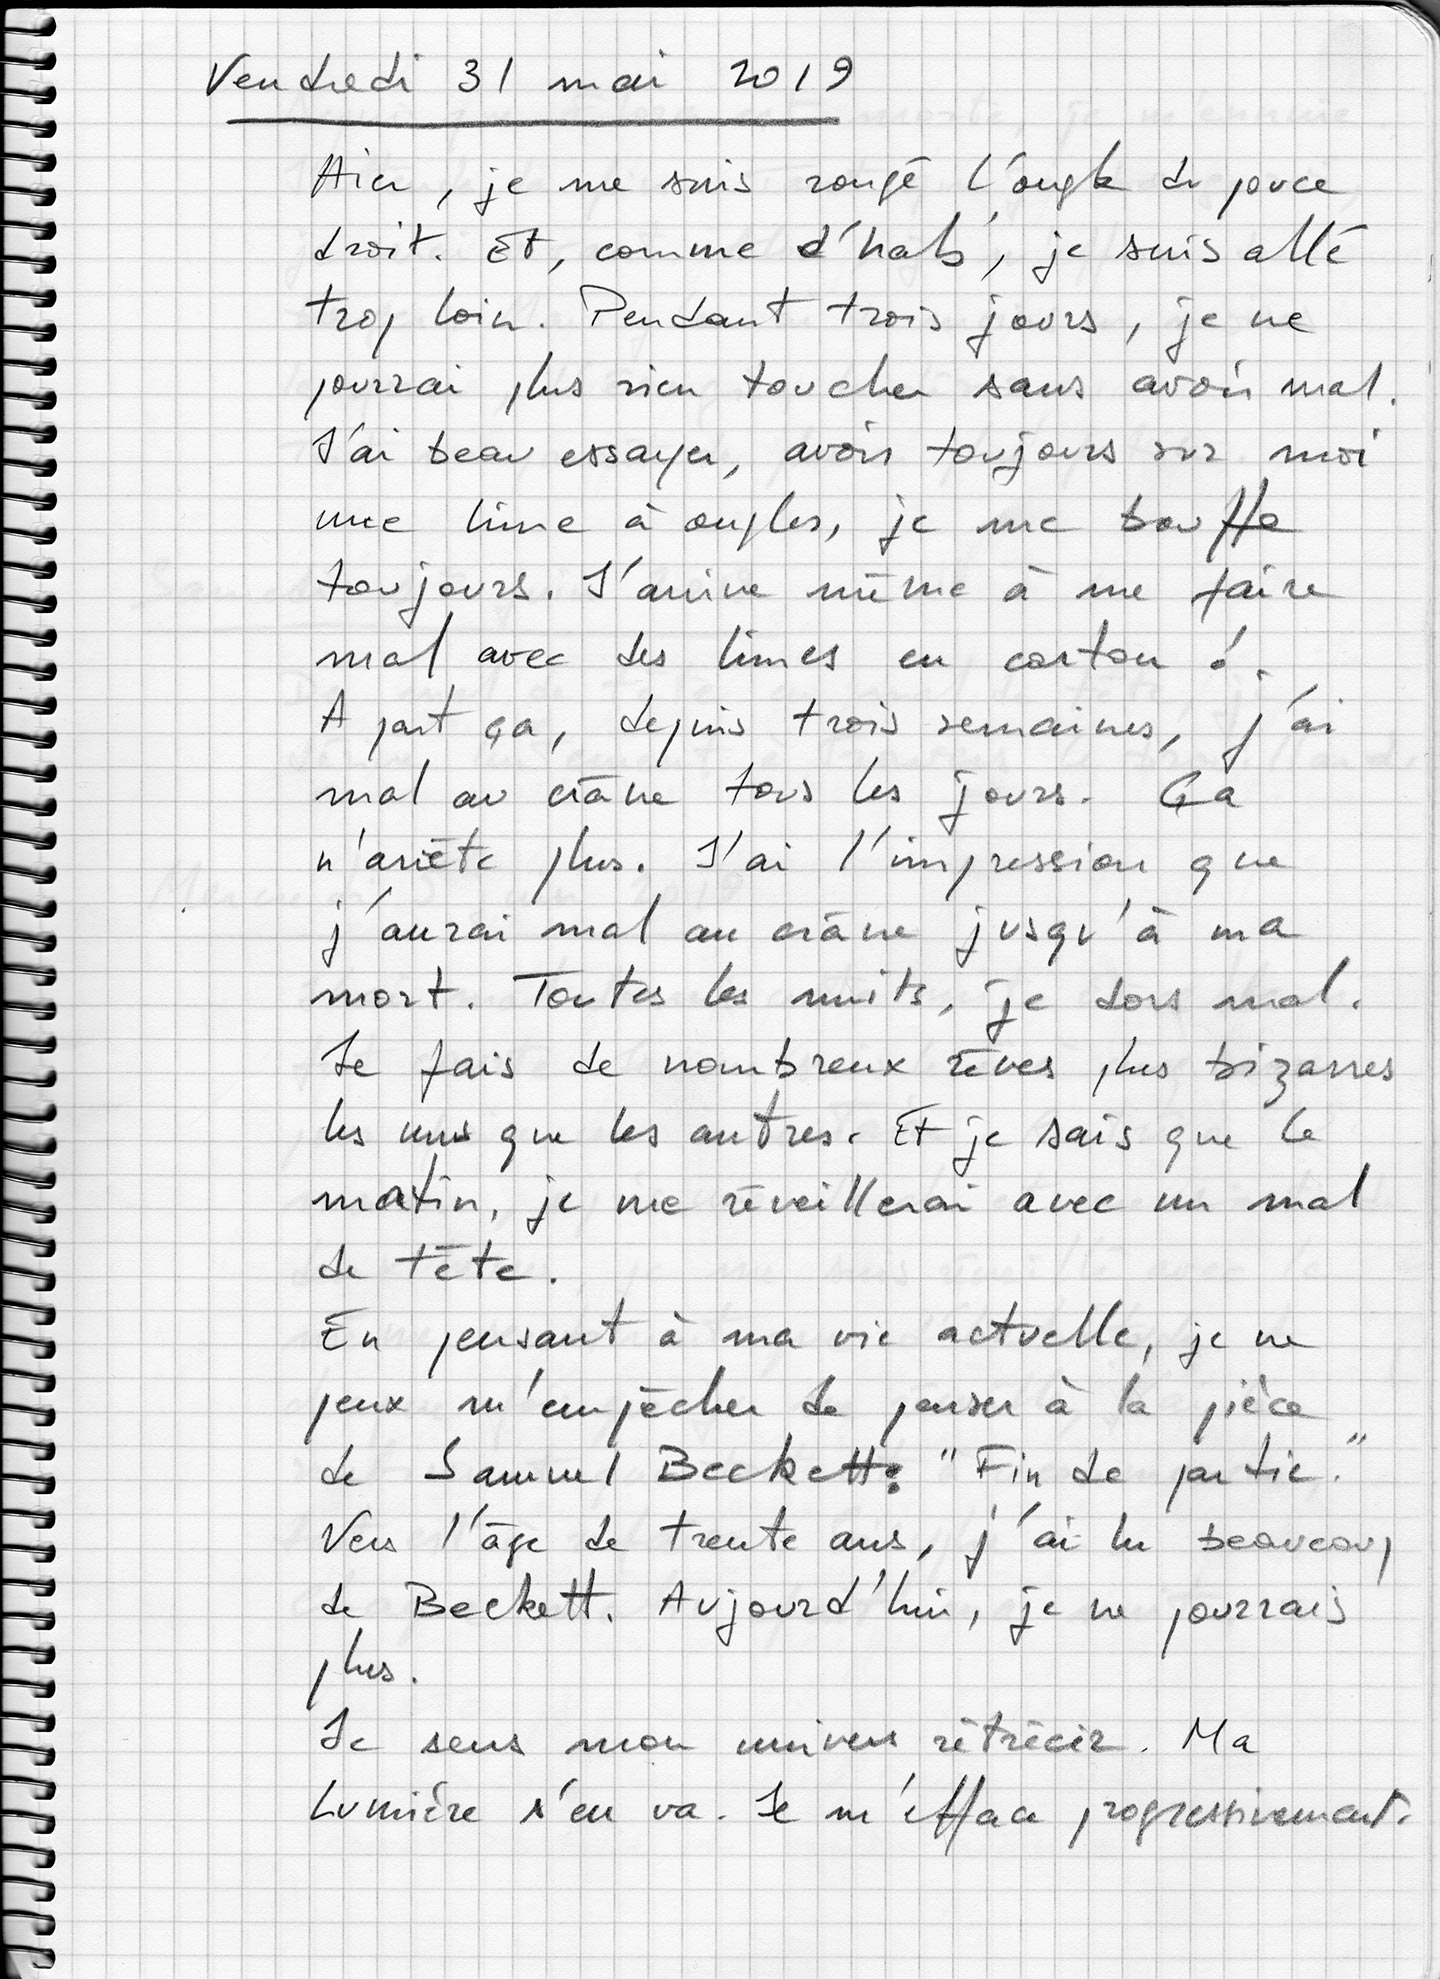 Vendredi 31 mai 2019
Hier, je me suis rongé l'ongle du pouce
droit. Et, comme d'hab', je suis allé
trop loin. Pendant trois jours, je ne
pourrai plus rien toucher sans avoir mal.
J'ai beau essayer, avoir toujours sur moi
une lime à ongles, je me bouffe
toujours. J'arrive même à me faire
mal avec des limes en carton !
A part ça, depuis trois semaines, j'ai
mal au crâne tous les jours. Ça
n'arrête plus. J'ai l'impression que
j'aurai mal au crâne jusqu'à ma
mort. Toutes les nuits, je dors mal.
Je fais de nombreux rêves plus bizarres
les uns que les autres. Et je sais que le
matin, je me réveillerai avec un mal
de tête.
En pensant à ma vie actuelle, je ne
peux m'empêcher de penser à la pièce
de Samuel Beckett: "Fin de partie."
Vers l'âge de trente ans, j'ai lu beaucoup
de Beckett. Aujourd'hui, je ne pourrais
plus.
Je sens mon univers rétrécir. Ma
Lumière s'en va. Je m'efface progressivement.